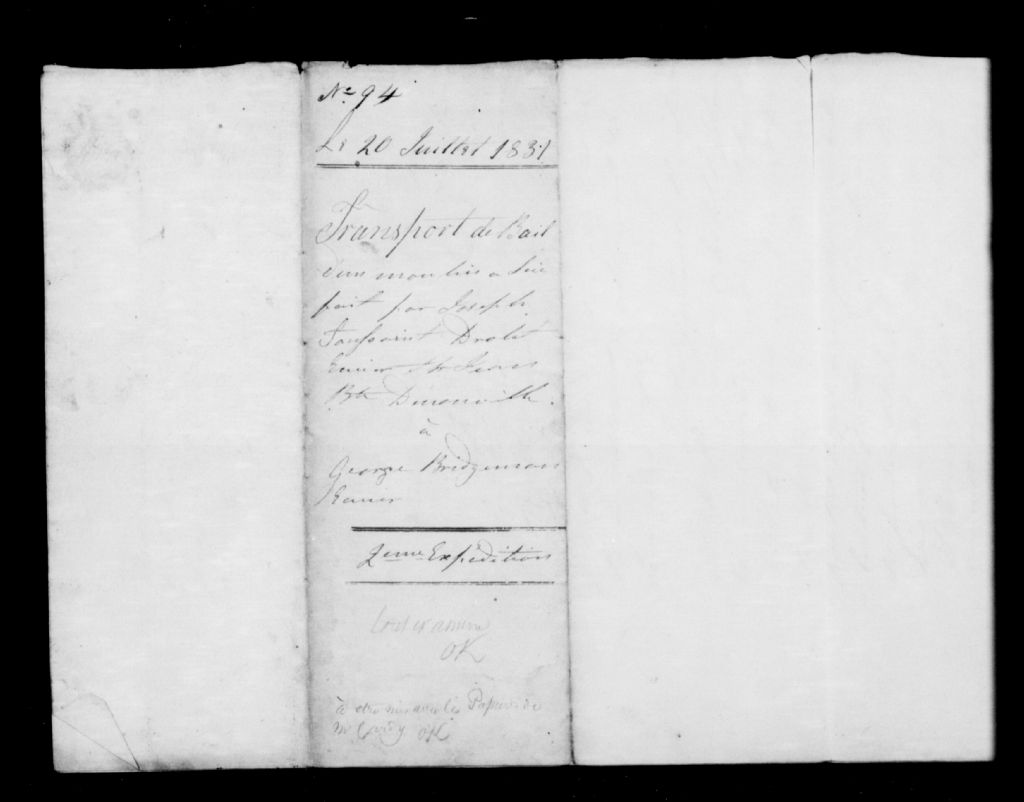 No. 94
Le 20 Juillet 1831
Transport de Bail
d'un moulin a Scie
fait par Joseph
Toussaint Drolet
Ecuier &
Bte Dumonville.
à
George Bridgeman
Ecuier
2eme Expédition
OK
à etre mis avec les Papiers de
Mr OK